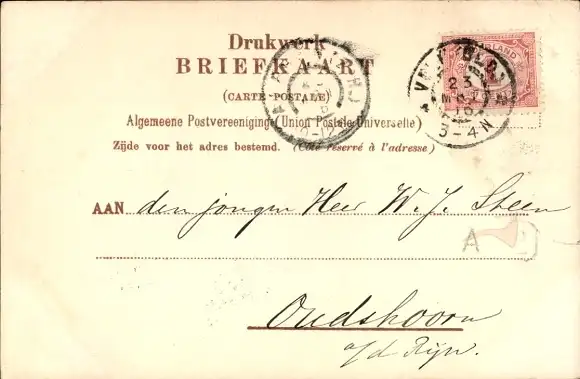 Drukwerk
BRIEFKAART
(CARTE-POSTALE)
Algemeene Postvereeniging (Union Postale Universelle)
Zijde voor het adres bestemd. (Côté réservé à l'adresse)
AAN den jongen Heer W. J. Steen
A
Oudshoorn
a/d Rijn.
23
3-4N